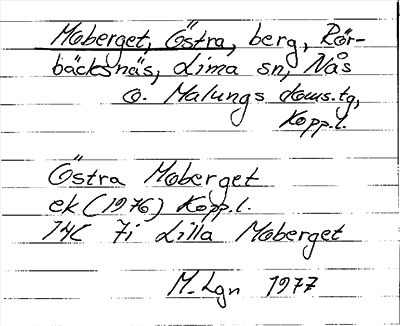 Moberget, Östra, berg, Rör-
bäcksnäs, Lima sn, Nås
o. Malungs doms.tg,
Kopp.l.
Östra Moberget
ek (1976) Kopp.l.
14C 7i Lilla Moberget
M. Lgn 1977